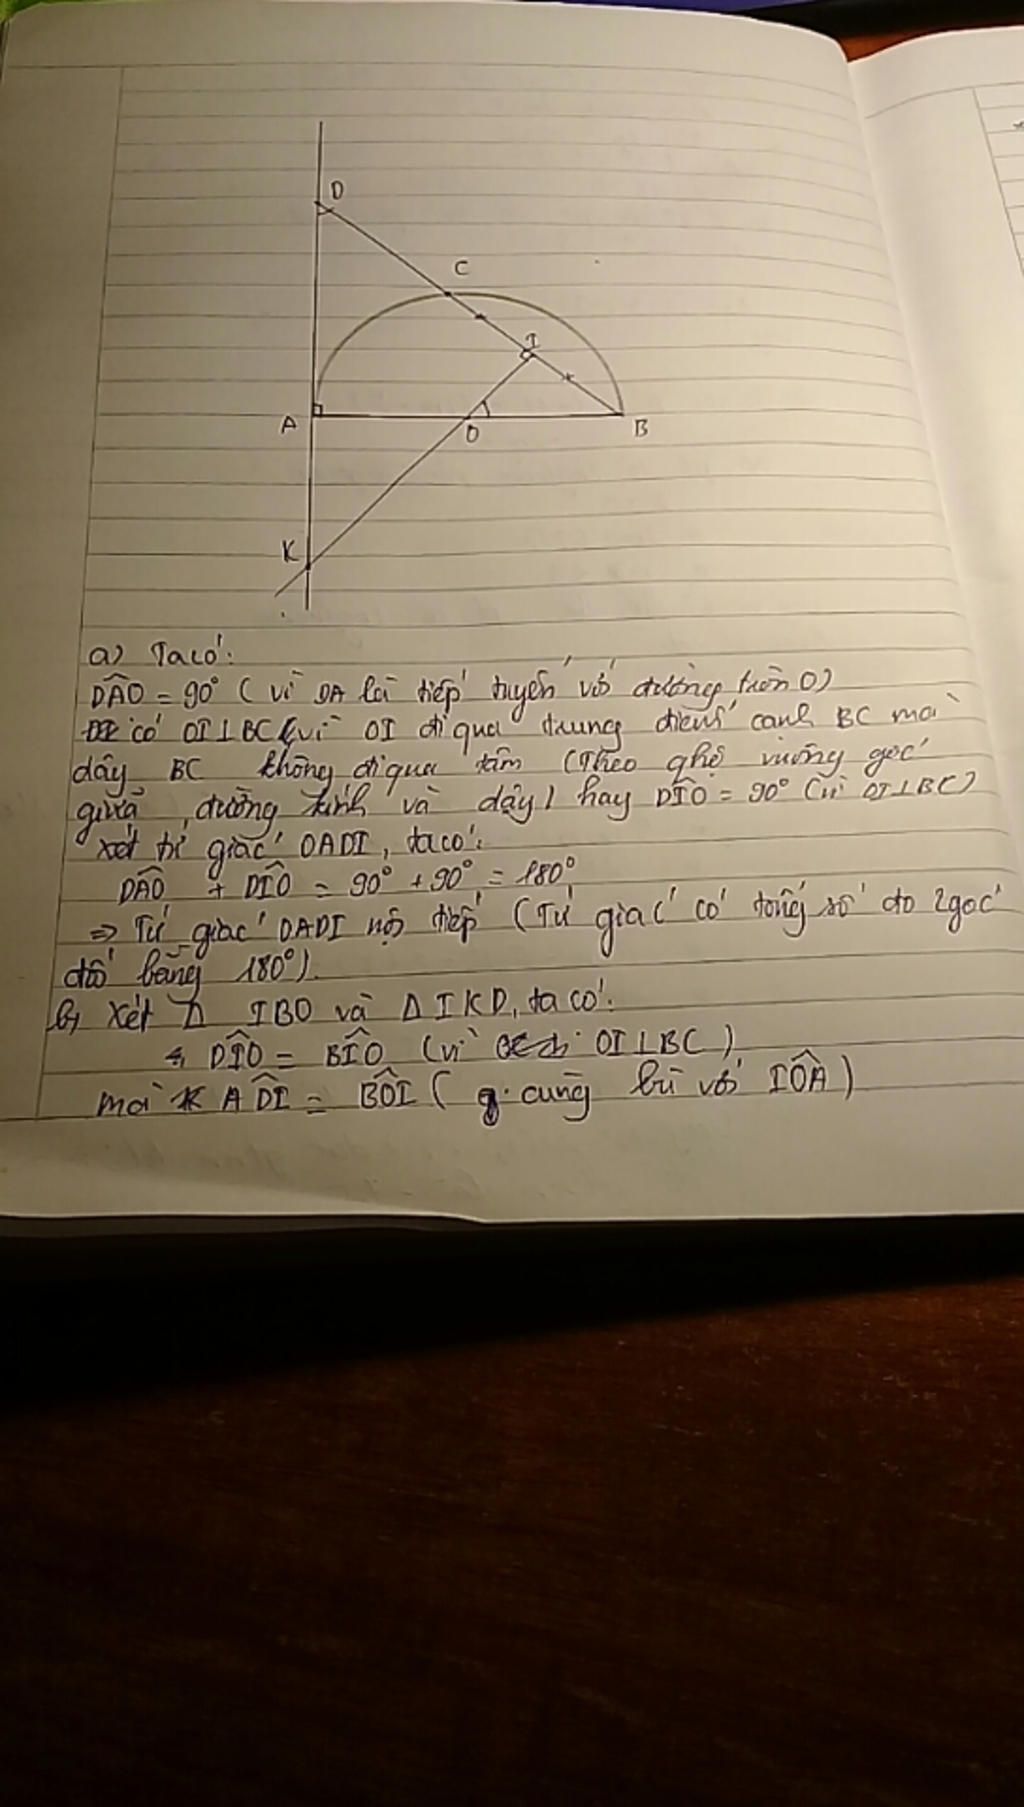 D
C
I
A
O
B
K
a) Ta có:
DÂO = 90° (vì DA là tiếp tuyến với đường tròn O)
có OI⊥BC (vì OI đi qua trung điểm cạnh BC mà
dây BC không đi qua tâm (Theo qhệ vuông góc
giữa đường kính và dây) hay DÎO = 90° (vì OI⊥BC)
xét tứ giác OADI, ta có:
DÂO + DÎO = 90° + 90° = 180°
⇒ Tứ giác OADI nội tiếp (Tứ giác có tổng số đo 2 góc
đối bằng 180°).
b, Xét Δ IBO và Δ IKD, ta có:
DÎO = BÎO (vì OI⊥BC)
mà ADI = BÔI ( cùng bù với IÔA)